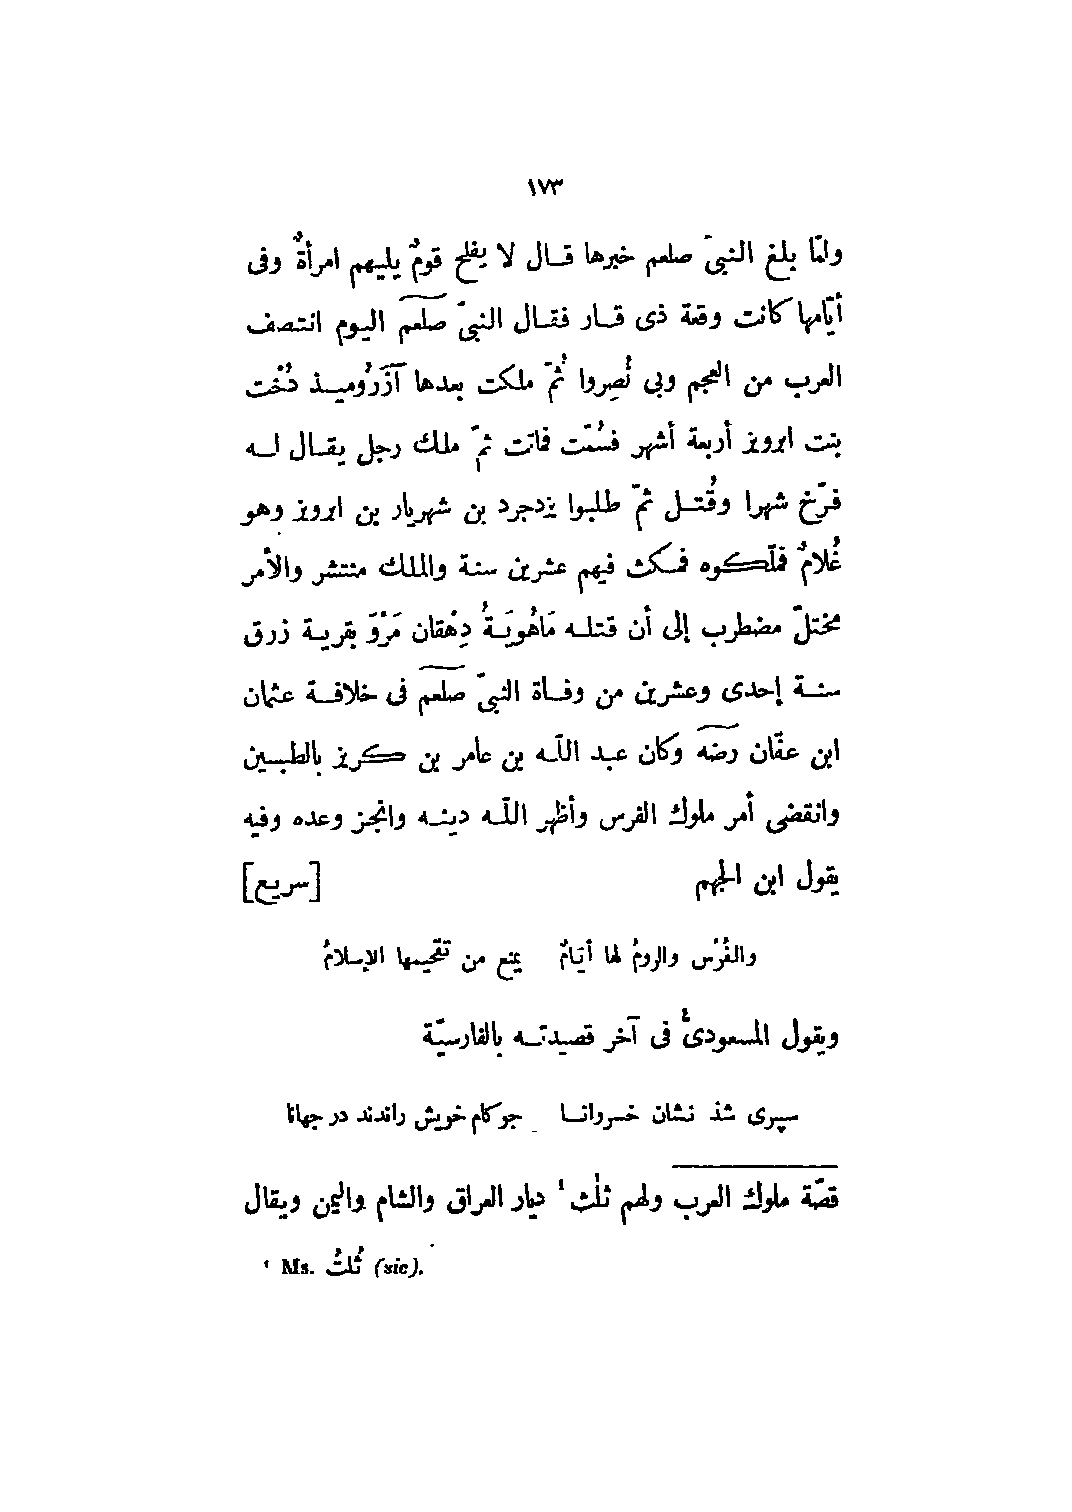 ١٧٣
ولمّا بلغ النبىّ صلعم خبرها قال لا يفلح قومٌ يليهم امرأةٌ وفى
أيّامها كانت وقعة ذى قار فقال النبىّ صلعم اليوم انتصف
العرب من العجم وبى نُصِروا ثُمّ ملكت بعدها آزَرُوميذ دُخْت
بنت ابرويز أربعة أشهر فسُمّت فماتت ثمّ ملك رجل يقال له
فرّخ شهرا وقُتل ثمّ طلبوا يزدجرد بن شهريار بن ابرويز وهو
غُلامٌ فملّكوه فمكث فيهم عشرين سنة والملك منتشر والأمر
مختلّ مضطرب إلى أن قتله مَاهُويَةُ دِهْقان مَرْوَ بقرية زرق
سنة إحدى وعشرين من وفاة النبىّ صلعم فى خلافة عثمان
ابن عفّان رضه وكان عبد اللّه بن عامر بن كريز بالطبسين
وانقضى أمر ملوك الفرس وأظهر اللّه دينه وانجز وعده وفيه
يقول ابن الجهم [سريع]
والفُرْس والرومُ لها أيّامٌ يمنع من تفخيمها الإسلامُ
ويقول المسعودىُّ فى آخر قصيدته بالفارسيّة
سپرى شذ نشان خسروانا جو كام خويش راندند در جهانا
قصّة ملوك العرب ولهم ثلٰث ¹ ديار العراق والشام واليمن ويقال
¹ Ms. ثُلثُ (sic).